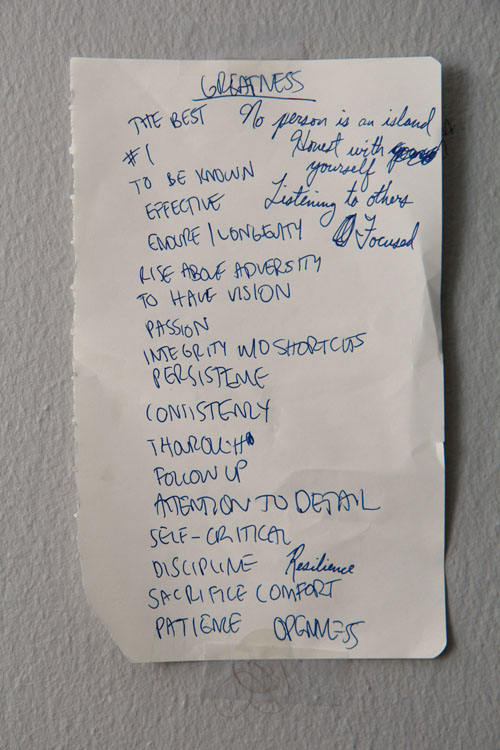 GREATNESS
THE BEST No person is an island
#1 Honest with
yourself
TO BE KNOWN
EFFECTIVE Listening to others
ENDURE / LONGEVITY Focused
RISE ABOVE ADVERSITY
TO HAVE VISION
PASSION
INTEGRITY W/O SHORTCUTS
PERSISTENCE
CONSISTENCY
THOUROUGH
FOLLOW UP
ATTENTION TO DETAIL
SELF-CRITICAL
DISCIPLINE Resilience
SACRIFICE COMFORT
PATIENCE OPENNESS